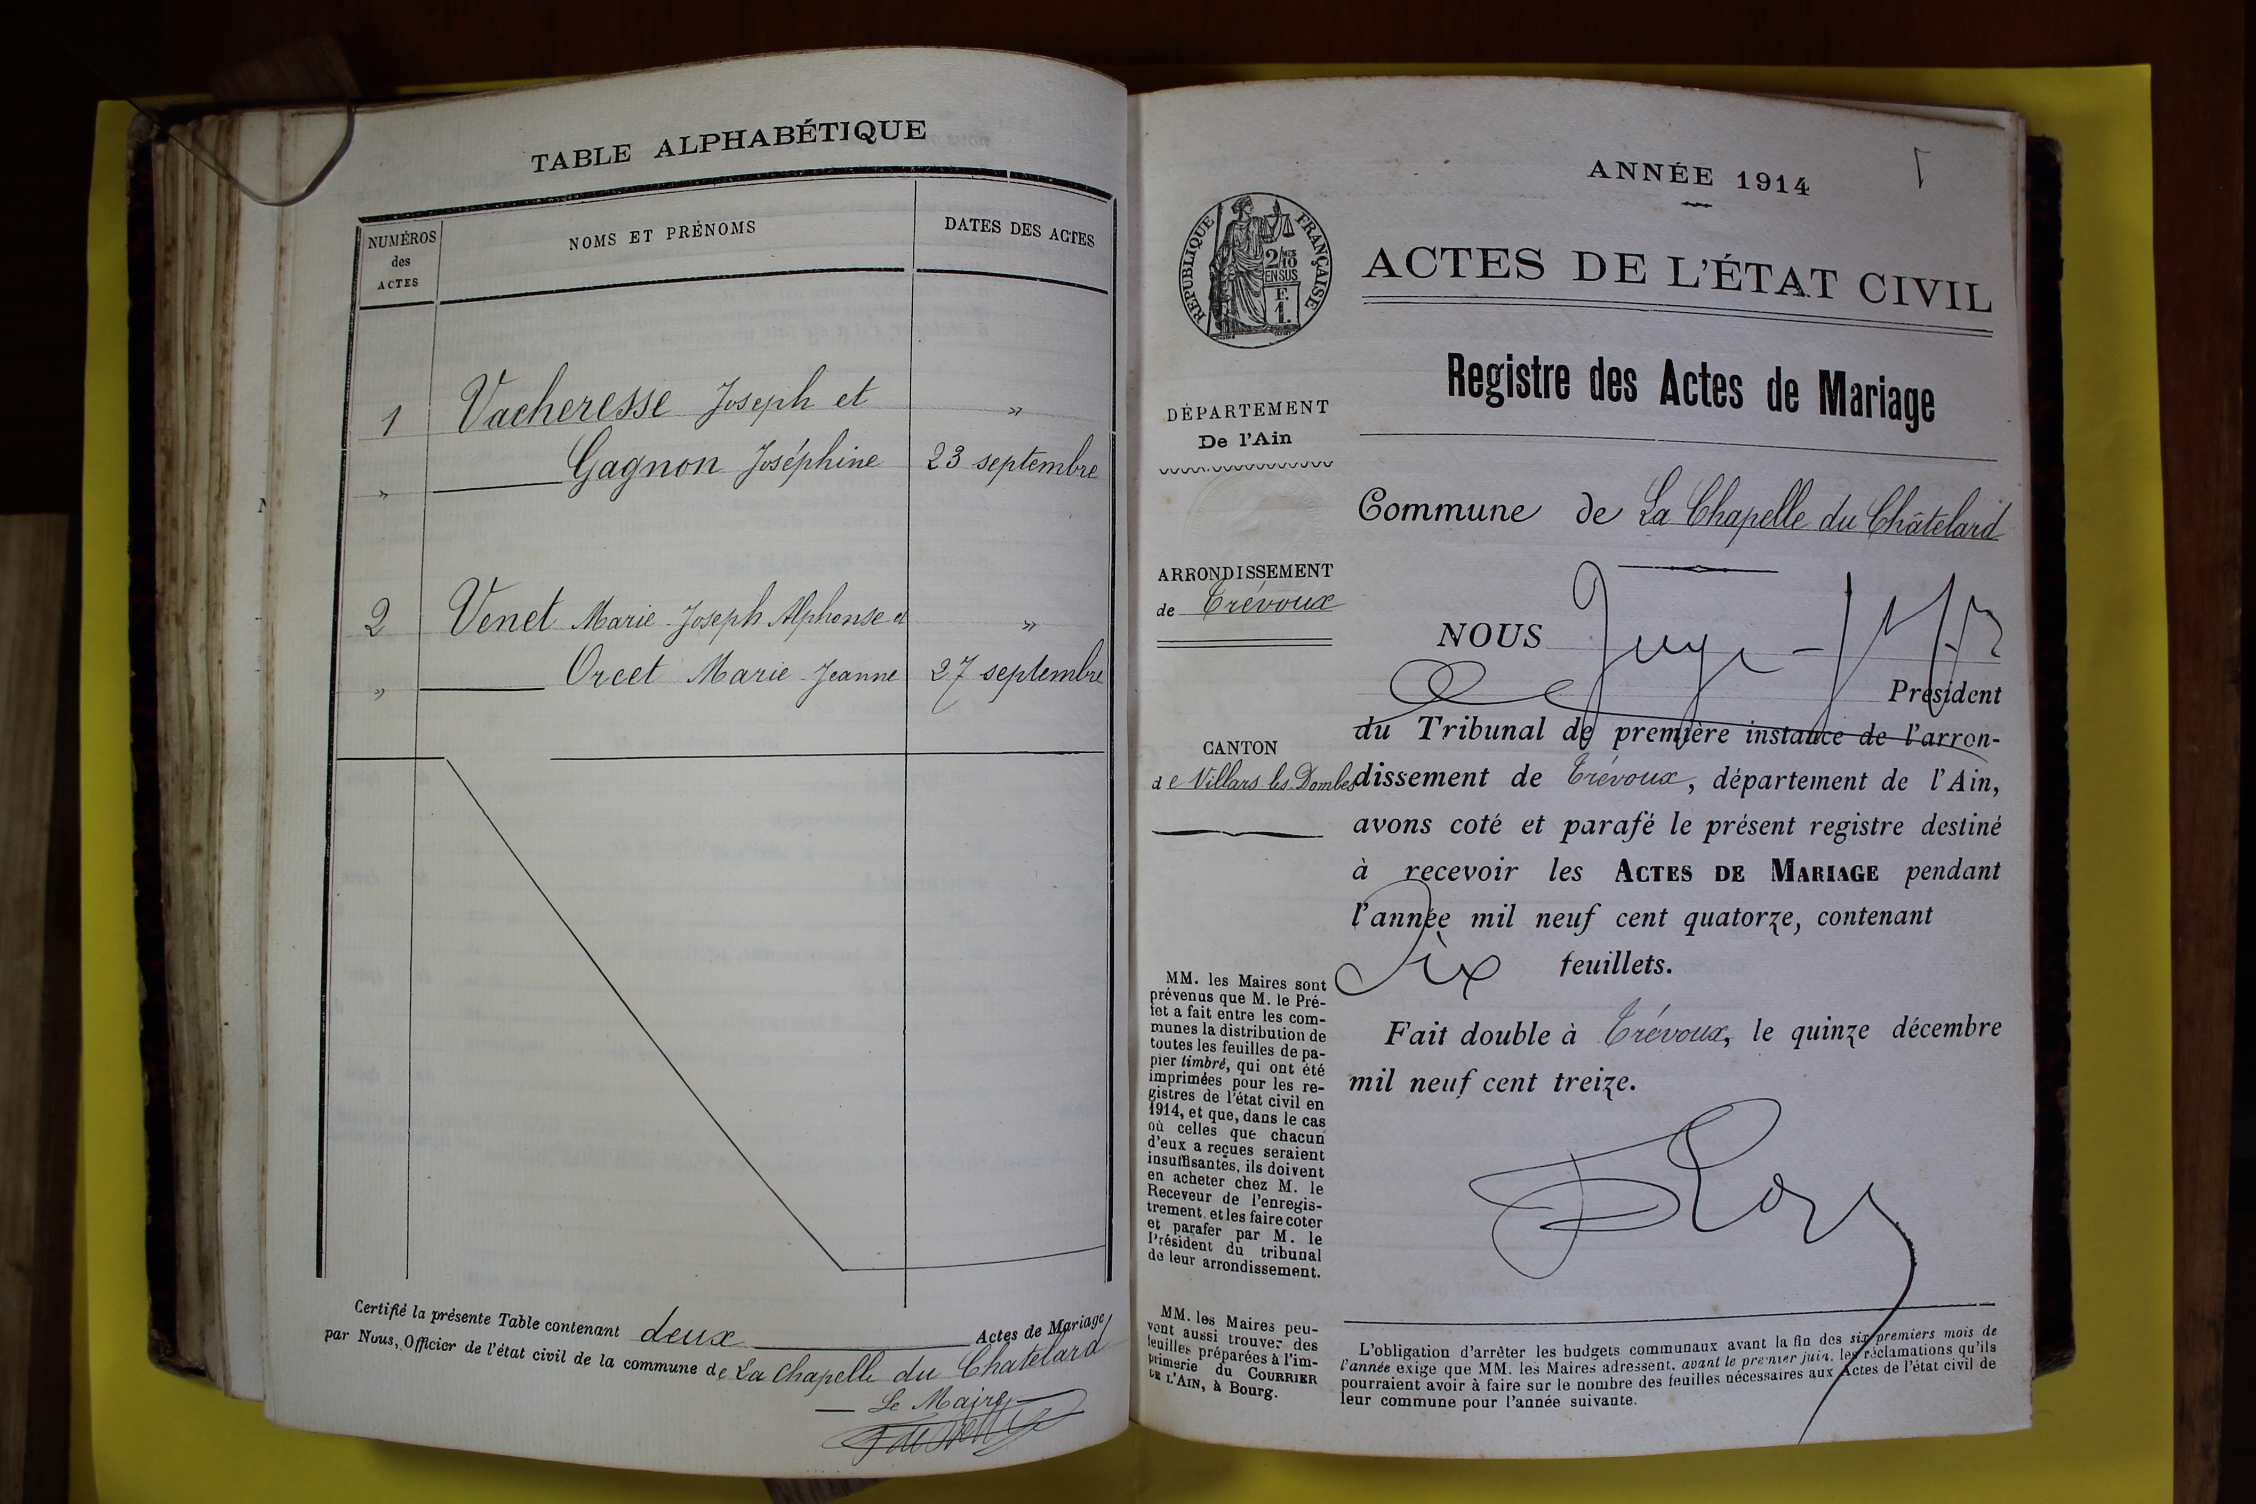 TABLE ALPHABÉTIQUE
NUMÉROS
des
ACTES
NOMS ET PRÉNOMS
DATES DES ACTES
1 Vacheresse Joseph et »
» Gagnon Joséphine 23 septembre
2 Venet Marie Joseph Alphonse et »
» Orcet Marie Jeanne 27 septembre
Certifié la présente Table contenant deux Actes de Mariage
par Nous, Officier de l'état civil de la commune de La Chapelle du Chatelard
Le Maire
ANNÉE 1914
RÉPUBLIQUE FRANÇAISE
2/10
EN SUS
F.
1.
ACTES DE L'ÉTAT CIVIL
Registre des Actes de Mariage
DÉPARTEMENT
De l'Ain
ARRONDISSEMENT
de Trévoux
CANTON
de Villars les Dombes
MM. les Maires sont
prévenus que M. le Pré-
fet a fait entre les com-
munes la distribution de
toutes les feuilles de pa-
pier timbré, qui ont été
imprimées pour les re-
gistres de l'état civil en
1914, et que, dans le cas
où celles que chacun
d'eux a reçues seraient
insuffisantes, ils doivent
en acheter chez M. le
Receveur de l'enregis-
trement, et les faire coter
et parafer par M. le
Président du tribunal
de leur arrondissement.
MM. les Maires peu-
vent aussi trouver des
feuilles préparées à l'im-
primerie du COURRIER
DE L'AIN, à Bourg.
Commune de La Chapelle du Châtelard
NOUS Juge
Président
du Tribunal de première instance de l'arron-
dissement de Trévoux, département de l'Ain,
avons coté et parafé le présent registre destiné
à recevoir les ACTES DE MARIAGE pendant
l'année mil neuf cent quatorze, contenant
feuillets.
Fait double à Trévoux, le quinze décembre
mil neuf cent treize.
L'obligation d'arrêter les budgets communaux avant la fin des six premiers mois de
l'année exige que MM. les Maires adressent, avant le premier juin, les réclamations qu'ils
pourraient avoir à faire sur le nombre des feuilles nécessaires aux Actes de l'état civil de
leur commune pour l'année suivante.